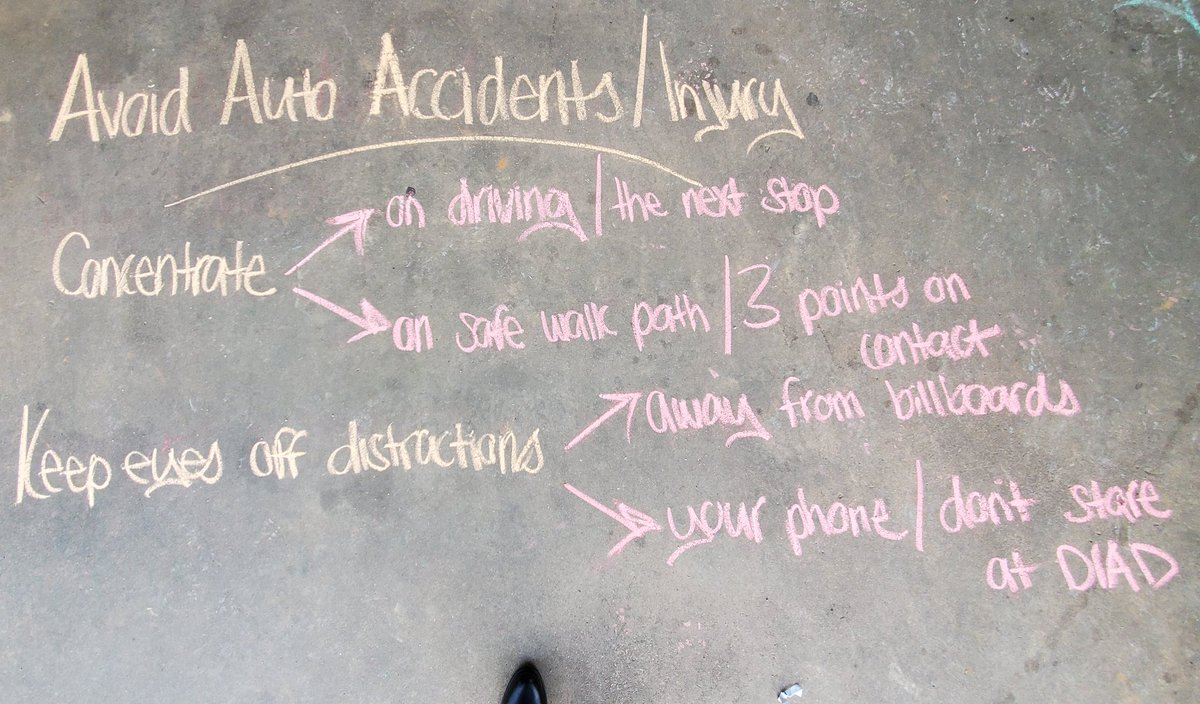 Avoid Auto Accidents/Injury
Concentrate
on driving/the next stop
on safe walk path/3 points on
contact
Keep eyes off distractions
away from billboards
your phone/don't stare
at DIAD